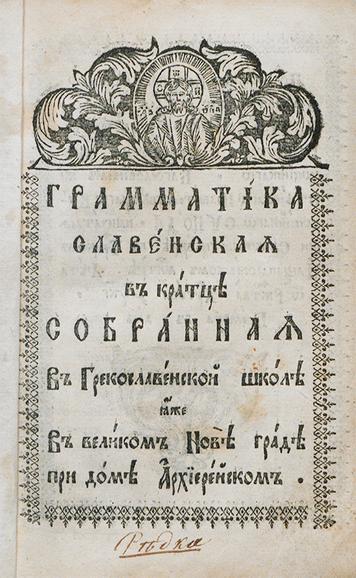 ГРАММАТІ́КА
СЛАВЕ́НСКАѦ
въ кра́тцѣ
СОБРА́ННАѦ
Въ Грекославе́нской шко́лѣ
ꙗ҆́же
Въ вели́комъ Но́вѣ гра́дѣ
при до́мѣ А҆рхїере́йскомъ .
Рѣдка